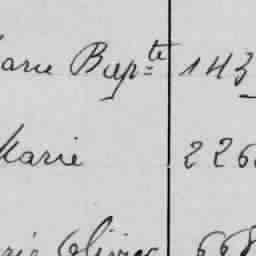 Marie Bapte 143
Marie 226
Olivier 668